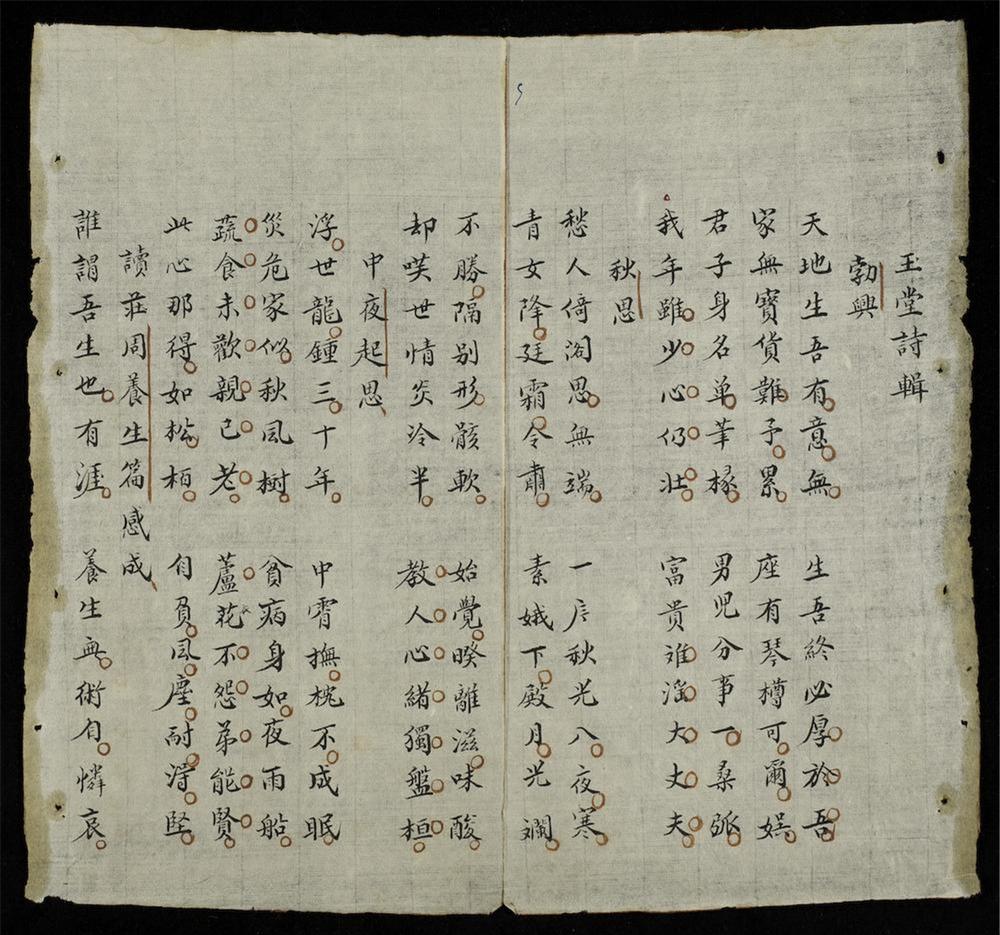 玉堂詩輯
勃興
天地生吾有意無　生吾終必厚於吾
家無寶貨難予累　座有琴樽可爾娯
君子身名单筆椽　男児分事一桑弧
我年雖少心仍壯　富贵难滛大丈夫
秋思
愁人倚阁思無端　一户秋光八夜寒
青女降廷霜令肅　素娥下殿月光斓
不勝隔别形骸軟　始覺暌離滋味酸
却咲世情炎冷半　教人心緒獨盤桓
中夜起思
浮世龍鍾三十年　中霄撫枕不成眠
災危家似秋風樹　貧病身如夜雨船
蔬食未歡親已老　蘆花不怨弟能賢
此心那得如松栢　自負風塵耐淂堅
讀莊周養生篇感成
誰謂吾生也有涯　養生無術自憐哀